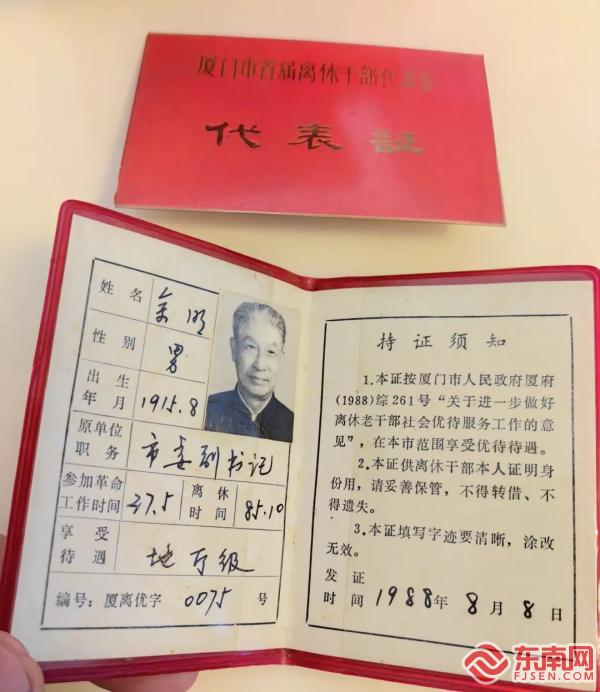 厦门市首届离休干部代表会
代表証
姓名 余明
性别 男
出生年月 1915.8
原单位职务 市委副书记
参加革命工作时间 37.5 离休时间 85.10
享受待遇 地厅级
编号：厦离优字 0075 号
持证须知
1.本证按厦门市人民政府厦府
(1988)综261号“关于进一步做好
离休老干部社会优待服务工作的意
见”，在本市范围享受优待待遇。
2.本证供离休干部本人证明身
份用，请妥善保管，不得转借、不
得遗失。
3.本证填写字迹要清晰，涂改
无效。
发证时间 1988年8月8日
东南网
FJSEN.COM